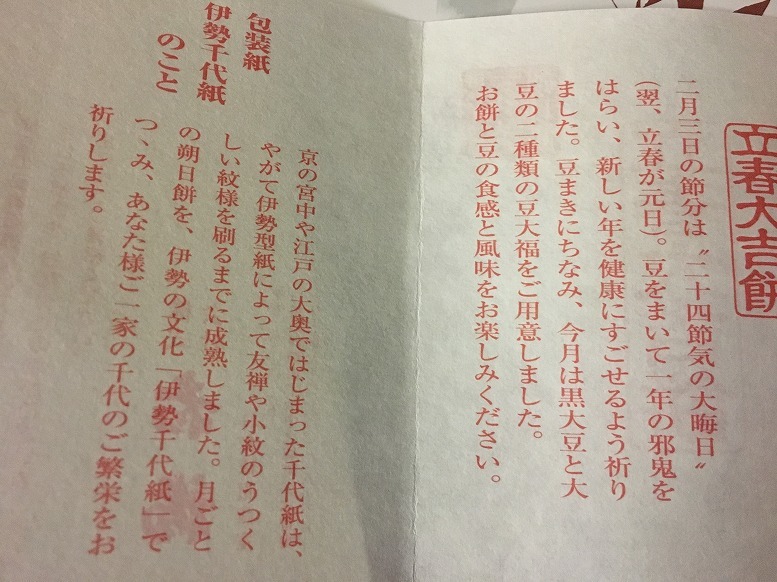 立春大吉餅
二月三日の節分は〝二十四節気の大晦日〟
(翌、立春が元日)。豆をまいて一年の邪鬼を
はらい、新しい年を健康にすごせるよう祈り
ました。豆まきにちなみ、今月は黒大豆と大
豆の二種類の豆大福をご用意しました。
お餅と豆の食感と風味をお楽しみください。
包装紙
伊勢千代紙
のこと
京の宮中や江戸の大奥ではじまった千代紙は、
やがて伊勢型紙によって友禅や小紋のうつく
しい紋様を刷るまでに成熟しました。月ごと
の朔日餅を、伊勢の文化「伊勢千代紙」で
つゝみ、あなた様ご一家の千代のご繁栄をお
祈りします。